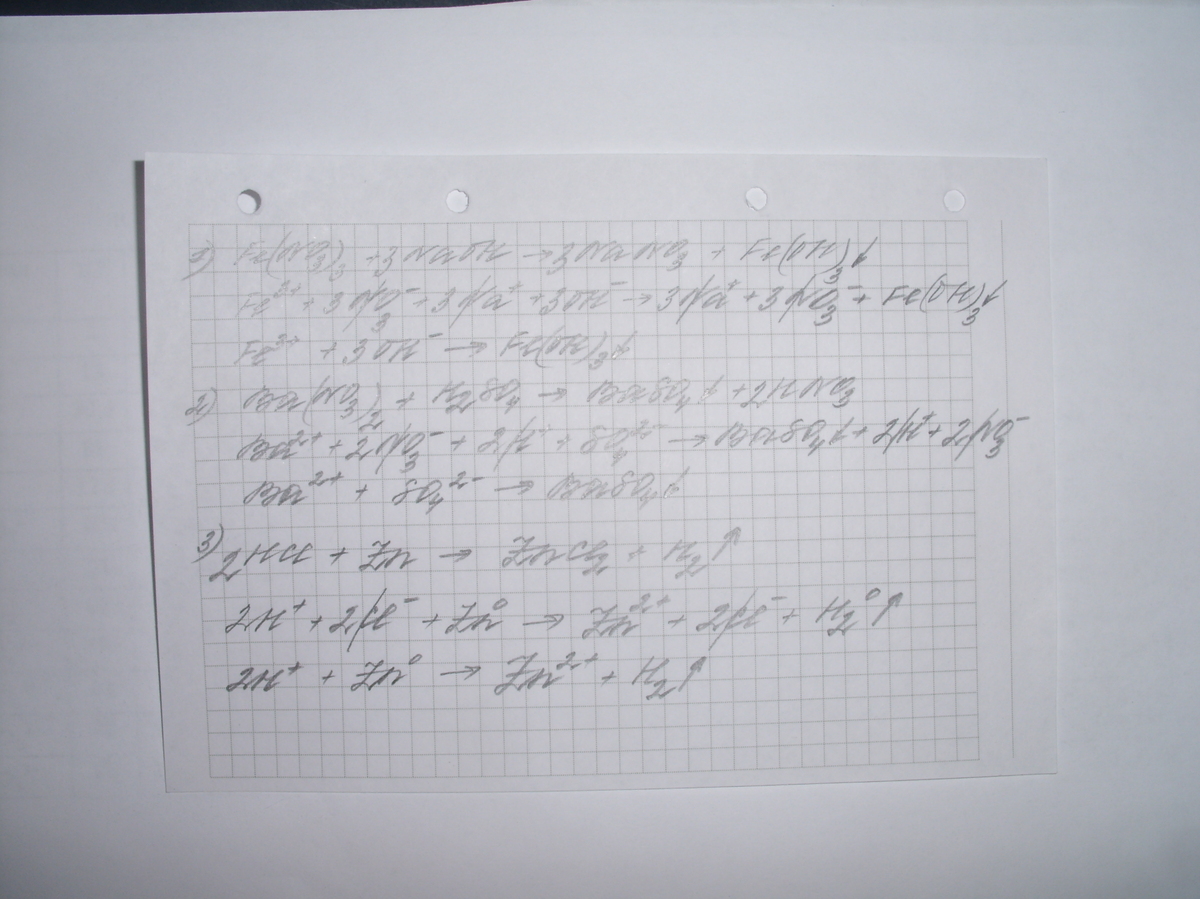 1) Fe(NO₃)₃ + 3NaOH → 3NaNO₃ + Fe(OH)₃↓
Fe³⁺ + 3NO₃⁻ + 3Na⁺ + 3OH⁻ → 3Na⁺ + 3NO₃⁻ + Fe(OH)₃↓
Fe³⁺ + 3OH⁻ → Fe(OH)₃↓
2) Ba(NO₃)₂ + H₂SO₄ → BaSO₄↓ + 2HNO₃
Ba²⁺ + 2NO₃⁻ + 2H⁺ + SO₄²⁻ → BaSO₄↓ + 2H⁺ + 2NO₃⁻
Ba²⁺ + SO₄²⁻ → BaSO₄↓
3) 2HCl + Zn → ZnCl₂ + H₂↑
2H⁺ + 2Cl⁻ + Zn⁰ → Zn²⁺ + 2Cl⁻ + H₂⁰↑
2H⁺ + Zn⁰ → Zn²⁺ + H₂↑